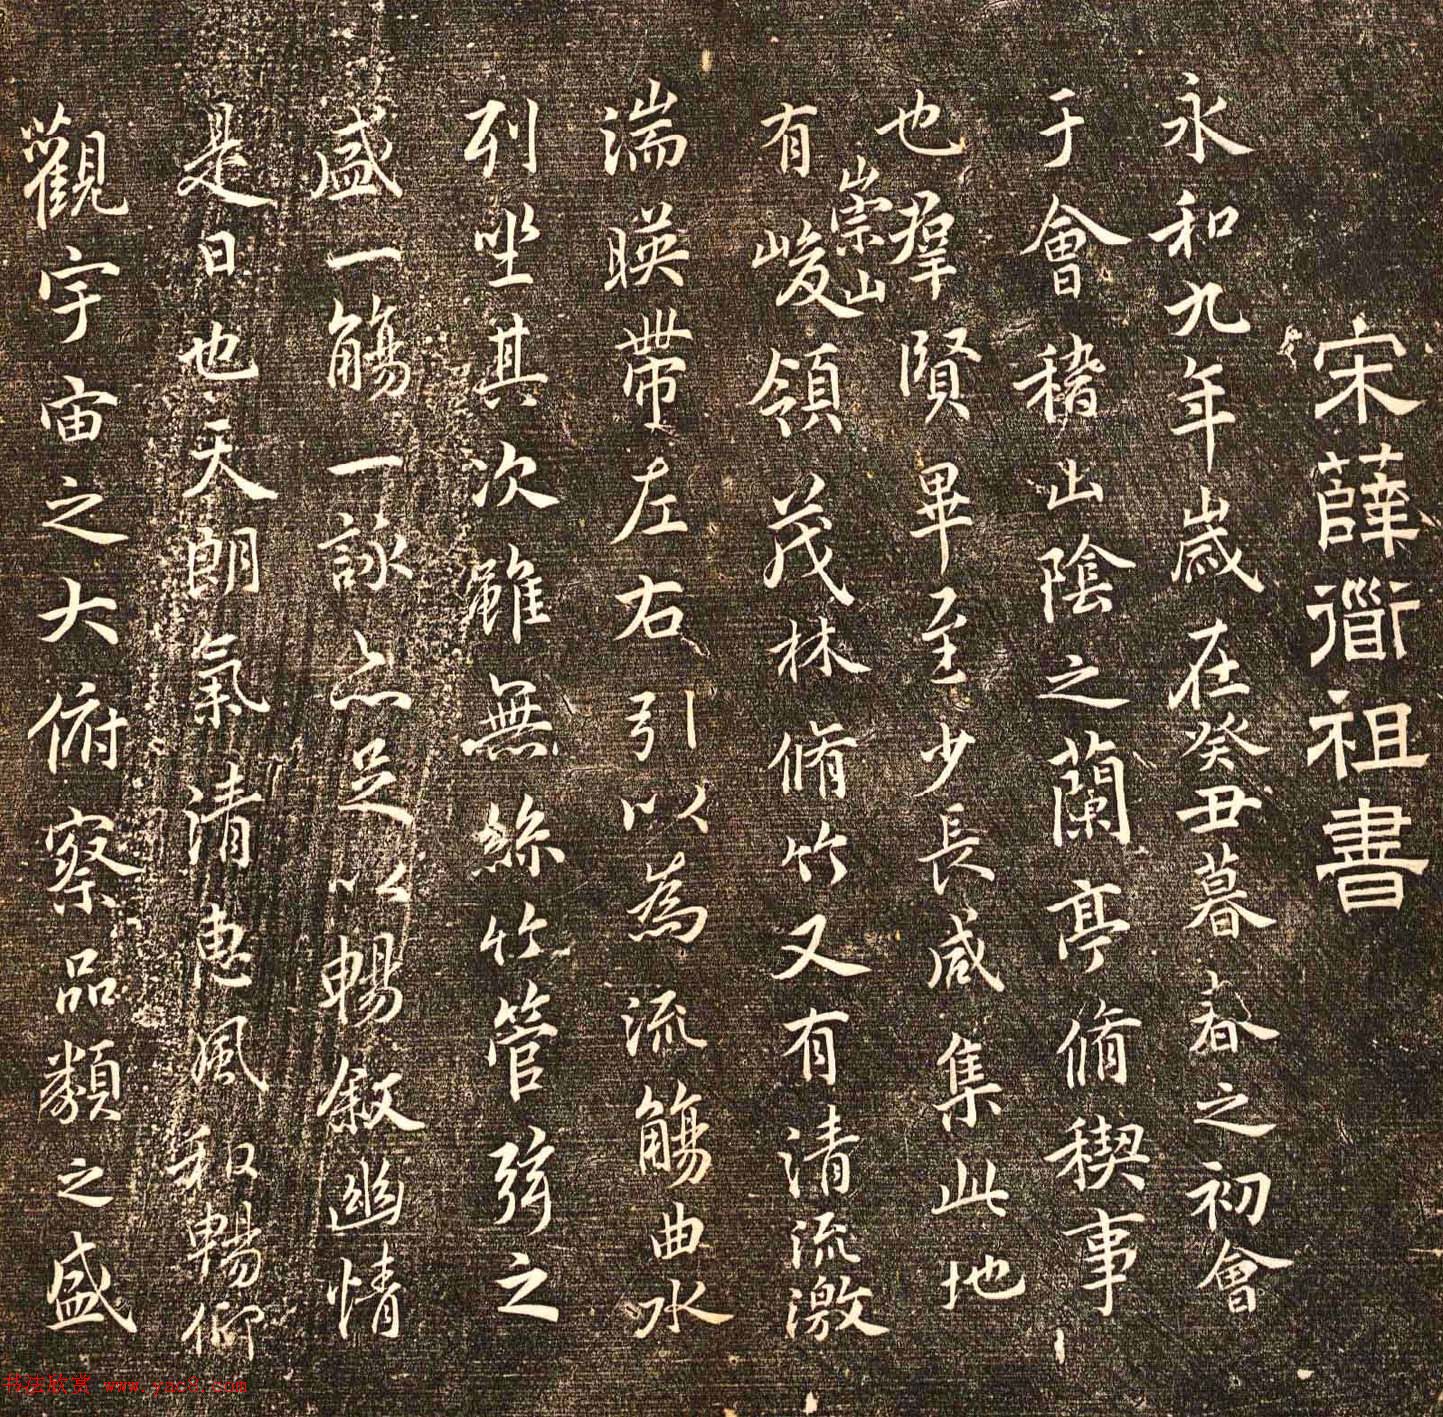 宋薛道祖書
永和九年歲在癸丑暮春之初會
于會稽山陰之蘭亭脩稧事
也羣賢畢至少長咸集此地
有崇山峻領茂林脩竹又有清流激
湍暎帶左右引以為流觴曲水
列坐其次雖無絲竹管弦之
盛一觴一詠亦足以暢叙幽情
是日也天朗氣清惠風和暢仰
觀宇宙之大俯察品類之盛
书法欣赏 www.yac8.com